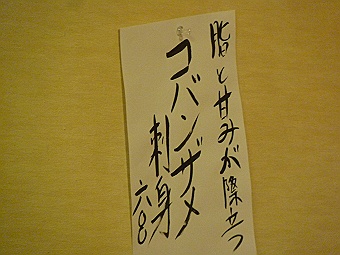 脂と甘みが際立つ
コバンザメ
刺身
六八〇